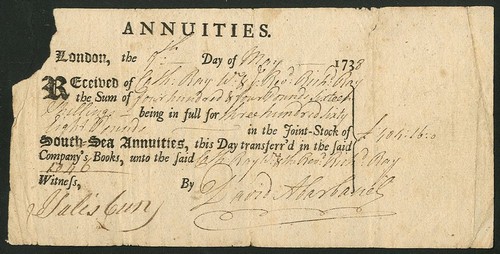 ANNUITIES.
London, the 9th Day of May 1738
Received of Cath: Ray Wid & Revd. Richd. Ray
the Sum of four hundred & four Pounds Sixteen
Shillings being in full for three hundred Sixty
Pounds in the Joint-Stock of
South-Sea Annuities, this Day transferr'd in the said
Company's Books, unto the said Cath Ray Revd. Richd. Ray
£404:16:0
Witness, By David Abarbanel
J Salisbury